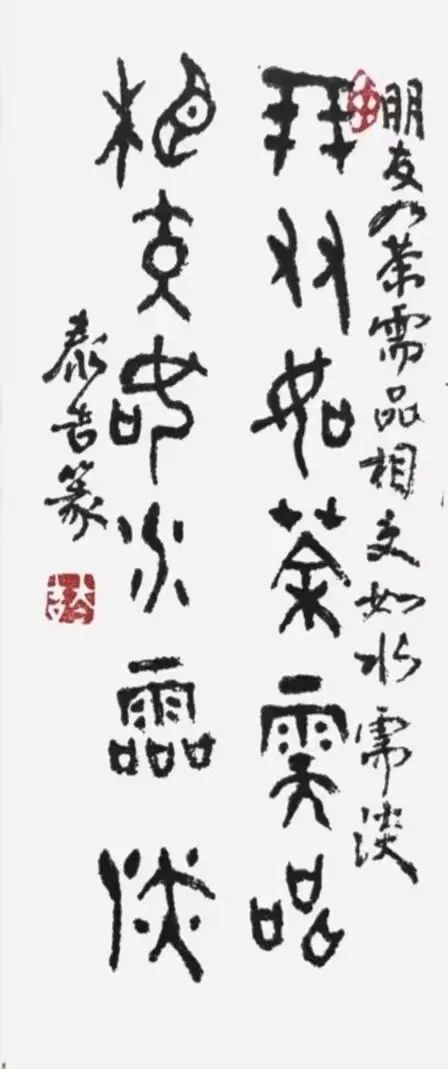 朋友如茶需品相交如水需淡
朋友如茶需品
相交如水霝淡
泰吉篆